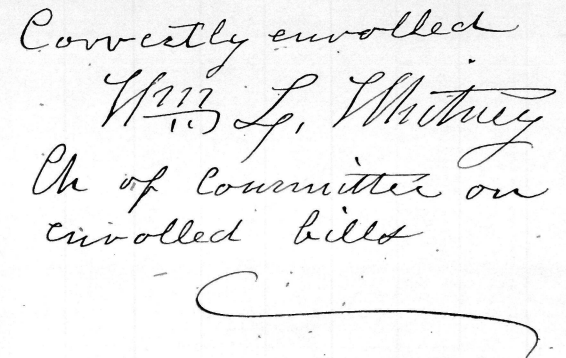 Correctly enrolled
Wm L. Whitney
Ch of Committee on
enrolled bills